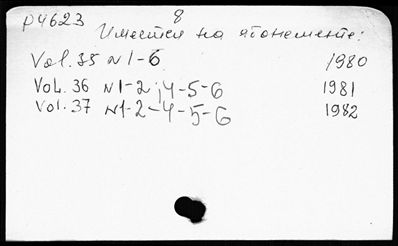 р4623 8
Имеется на абонементе:
Vol. 35 N1-6 1980
VoL. 36 N1-2; 4-5-6 1981
Vol. 37 N1-2-4-5-6 1982